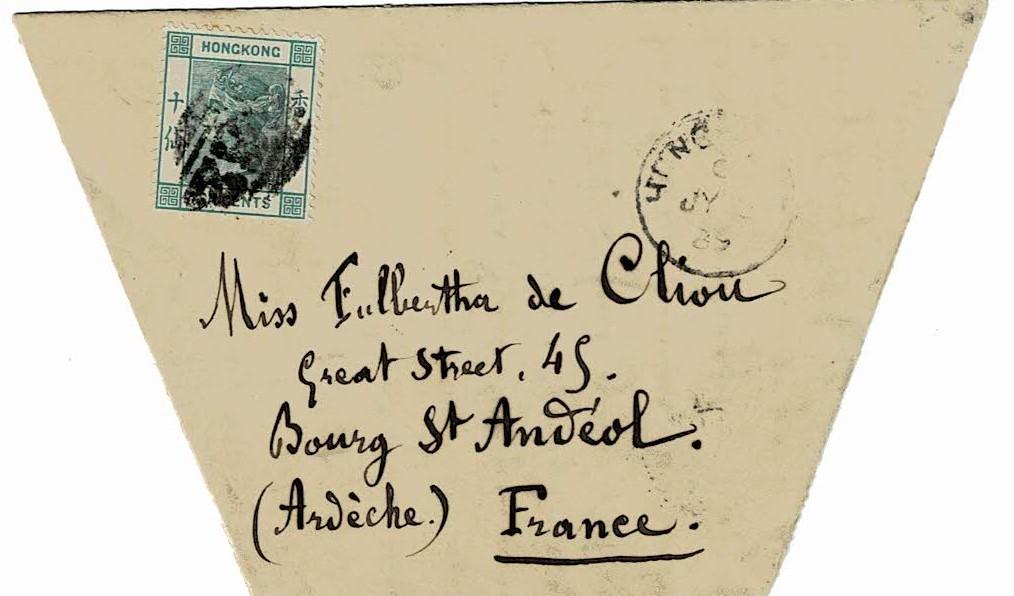 HONGKONG
十 香
CENTS
HONG
JY
89
Miss Fulbertha de Cliou
Great Street, 45.
Bourg St Andéol.
(Ardèche.) France.